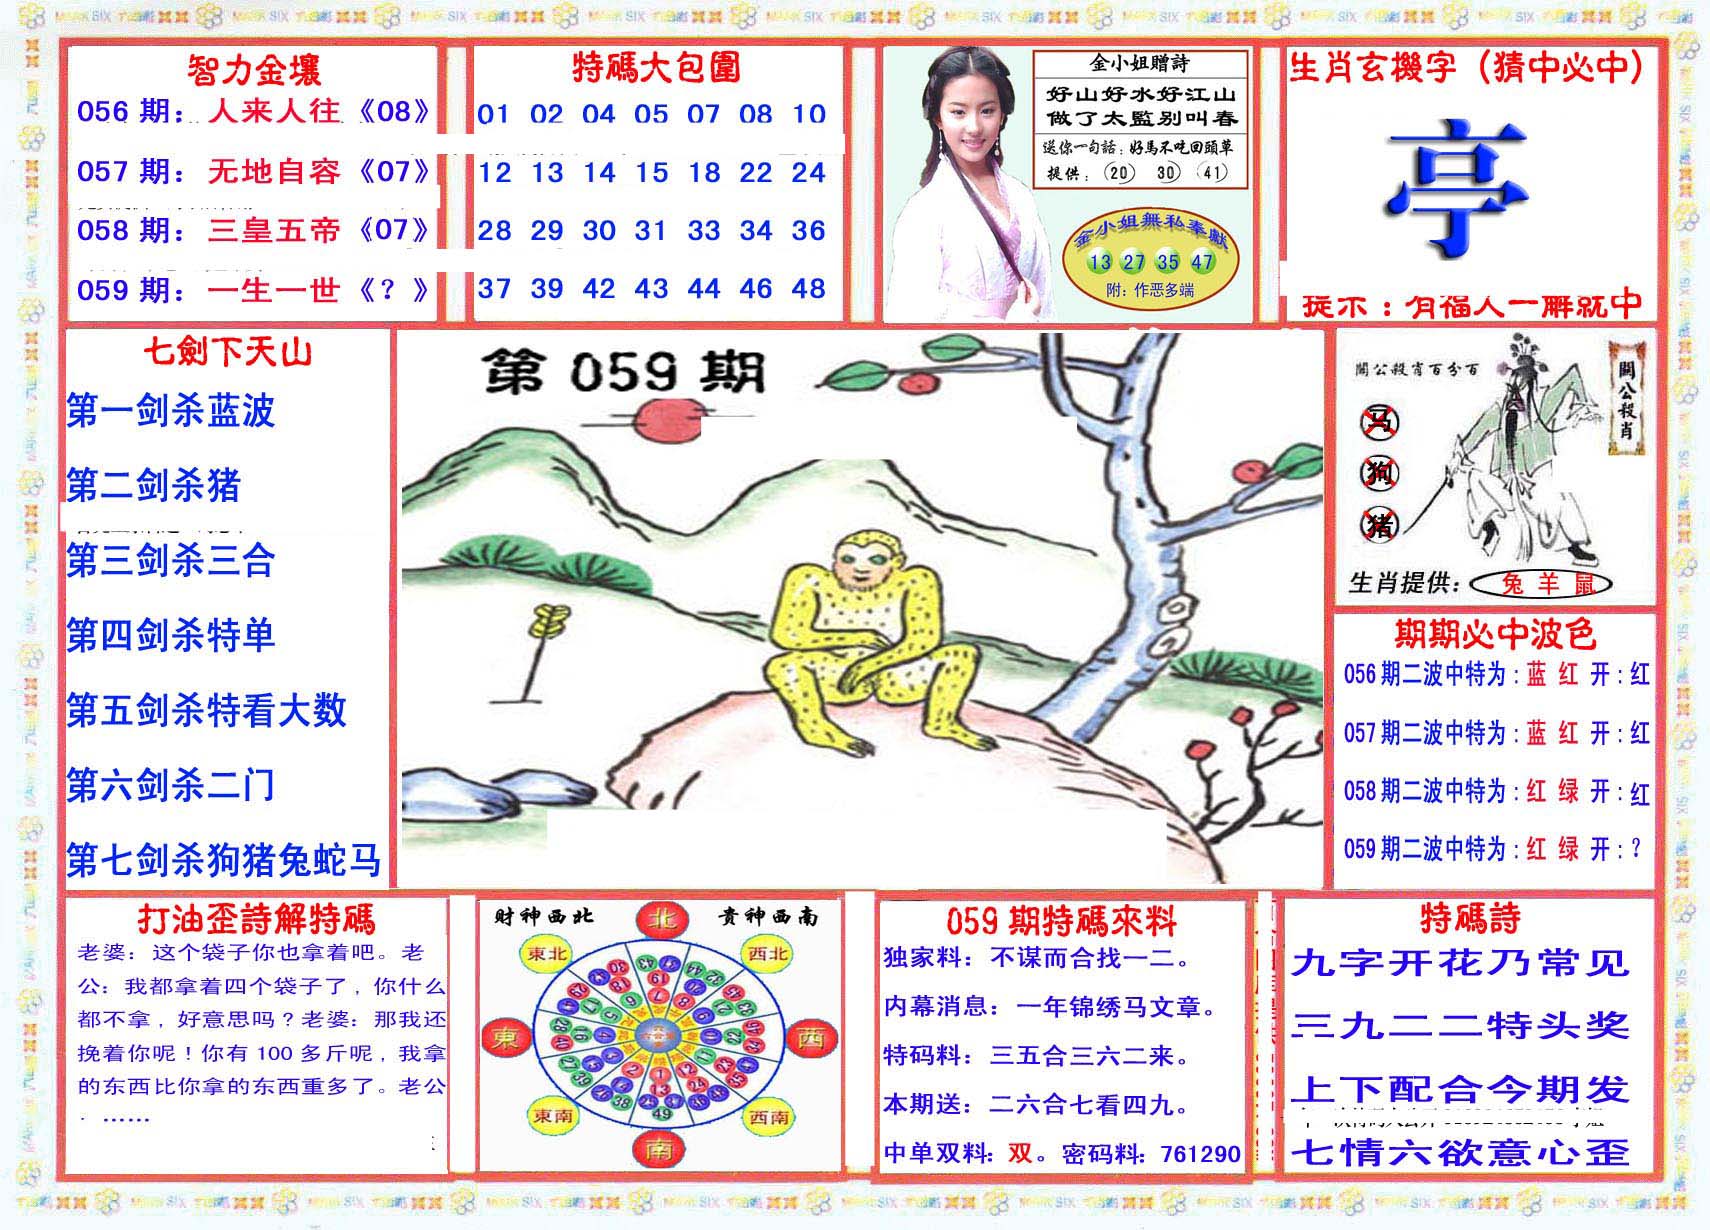 智力金壤
056期：人来人往《08》
057期：无地自容《07》
058期：三皇五帝《07》
059期：一生一世《？》
特碼大包圍
01 02 04 05 07 08 10
12 13 14 15 18 22 24
28 29 30 31 33 34 36
37 39 42 43 44 46 48
金小姐贈詩
好山好水好江山
做了太監别叫春
送你一句話：好馬不吃回頭草
提供：(20) 30) (41)
金小姐無私奉獻
13 27 35 47
附：作恶多端
生肖玄機字（猜中必中）
亭
提示：有福人一解就中
七劍下天山
第一剑杀蓝波
第二剑杀猪
第三剑杀三合
第四剑杀特单
第五剑杀特看大数
第六剑杀二门
第七剑杀狗猪兔蛇马
第059期
關公殺肖百分百
關公殺肖
马
狗
猪
生肖提供：兔 羊 鼠
期期必中波色
056期二波中特为：蓝 红 开：红
057期二波中特为：蓝 红 开：红
058期二波中特为：红 绿 开：红
059期二波中特为：红 绿 开：？
打油歪詩解特碼
老婆：这个袋子你也拿着吧。老
公：我都拿着四个袋子了，你什么
都不拿，好意思吗？老婆：那我还
挽着你呢！你有100多斤呢，我拿
的东西比你拿的东西重多了。老公
：……
財神西北
貴神西南
北
東北
西北
東
西
東南
西南
南
059期特碼來料
独家料：不谋而合找一二。
内幕消息：一年锦绣马文章。
特码料：三五合三六二来。
本期送：二六合七看四九。
中单双料：双。密码料：761290
特碼詩
九字开花乃常见
三九二二特头奖
上下配合今期发
七情六欲意心歪